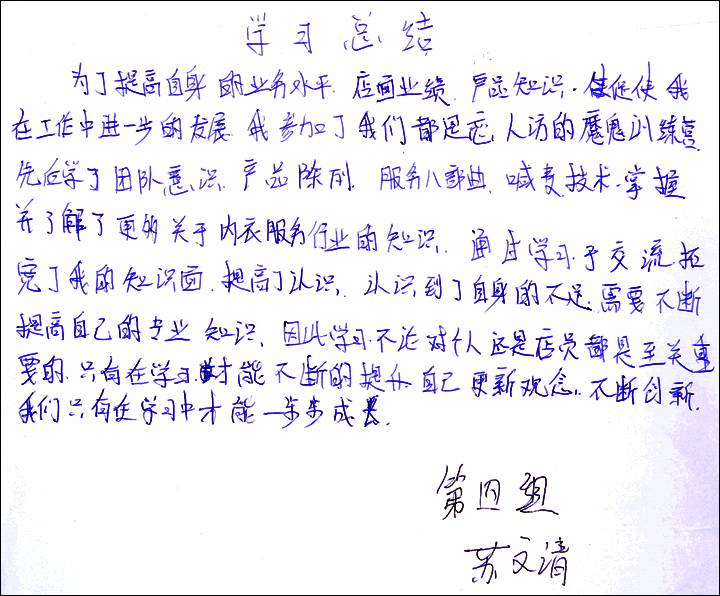 学习总结
为了提高自身的业务水平、店面业绩、产品知识、促使我
在工作中进一步的发展、我参加了我们都思恋人访的魔鬼训练营
先后学了团队意识、产品陈列、服务八部曲、喊麦技术、掌握
并了解了更多关于内衣服务行业的知识、通过学习于交流拓
宽了我的知识面、提高了认识、认识到了自身的不足、需要不断
提高自己的专业知识、因此学习不论对个人还是店员都是至关重
要的、只有在学习中才能不断的提升自己更新观念、不断创新、
我们只有在学习中才能一步步成长、
第四组
苏文清